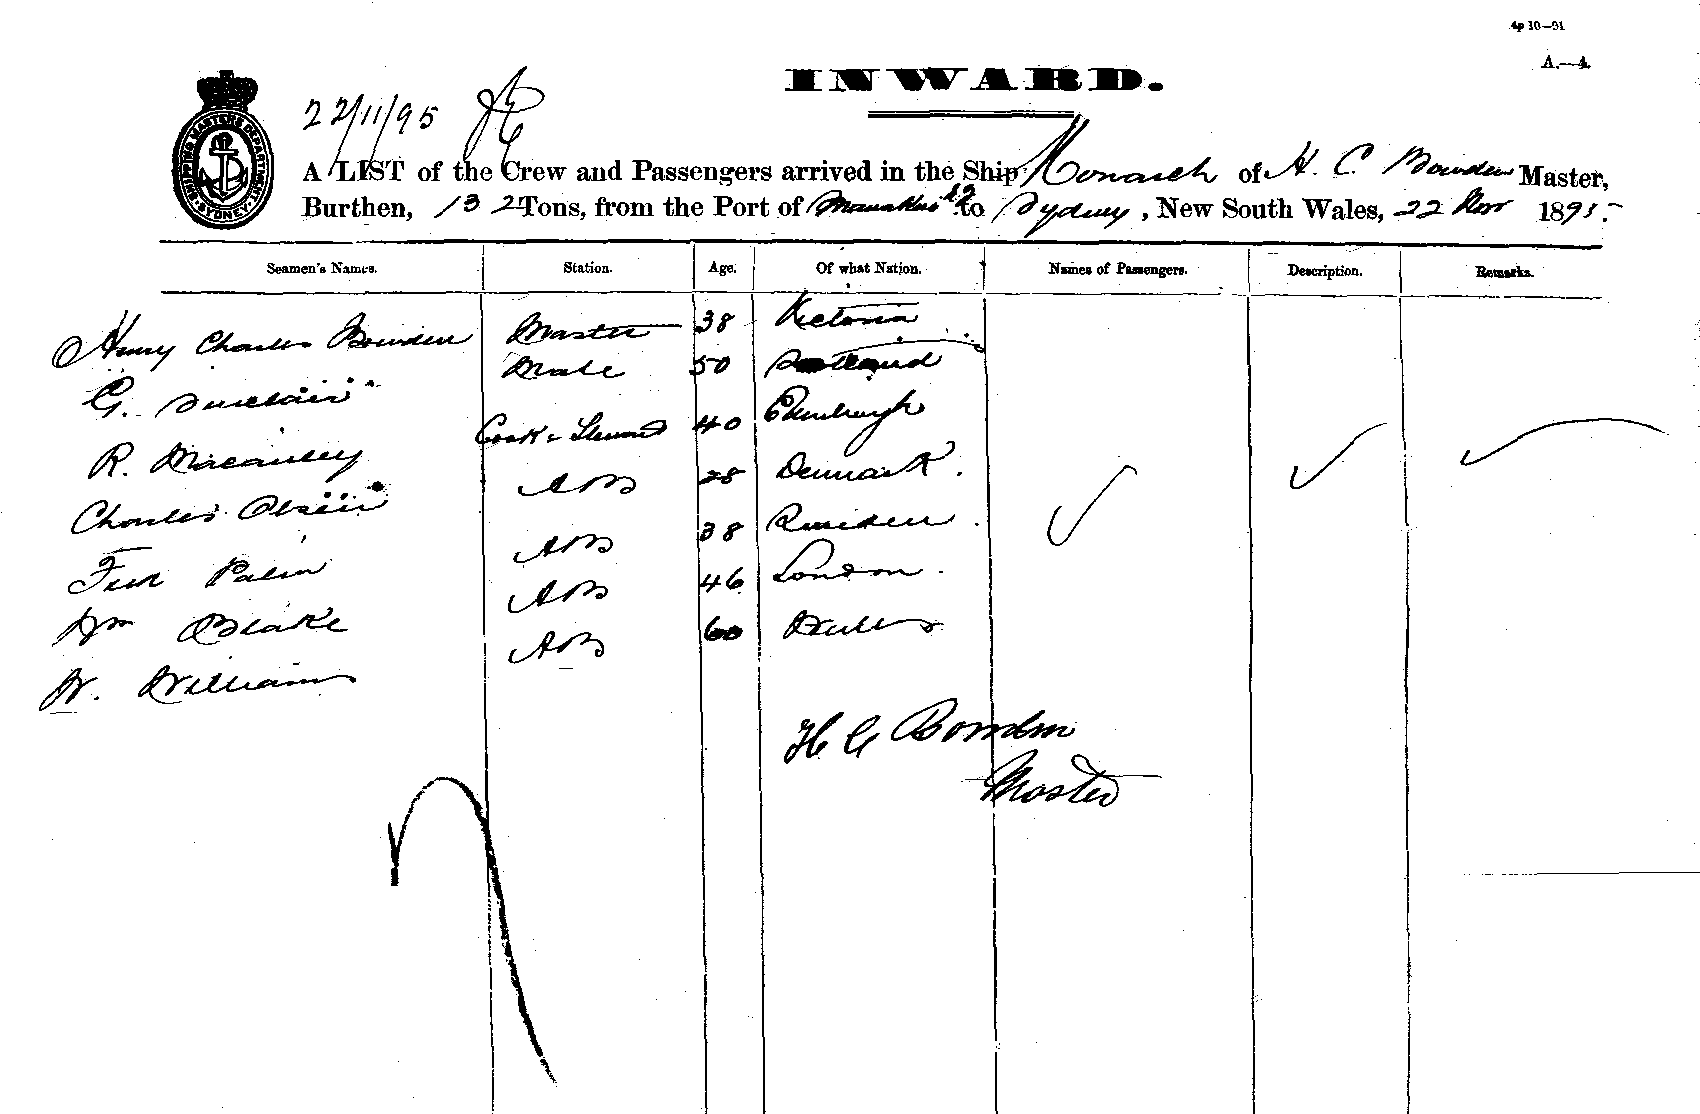 4p 10—91
A.—4.
INWARD.
22/11/95
SHIPPING MASTERS DEPARTMENT SYDNEY
A LIST of the Crew and Passengers arrived in the Ship Monarch of H. C. Bowden Master,
Burthen, 132 Tons, from the Port of NZ to Sydney, New South Wales, 22 Nov 1895.
Seamen's Names. Station. Age. Of what Nation. Names of Passengers. Description. Remarks.
Henry Charles Bowden Master 38 Victoria
G. Sinclair Mate 50 Scotland
R. Macauley Cook & Steward 40 Edinburgh
Charles Olsen AB 28 Denmark.
Palm AB 38 Sweden.
Wm Blake AB 46 London.
W. Williams AB 60
H C Bowden
Master